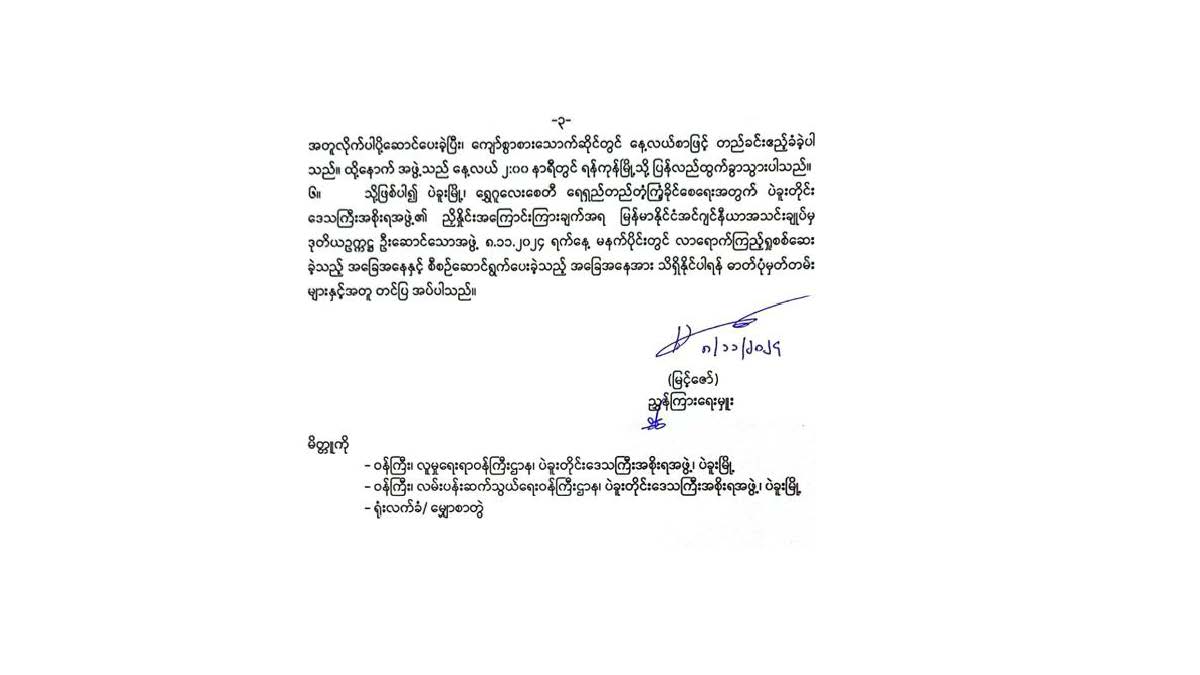 -၃-
အတူလိုက်ပါပို့ဆောင်ပေးခဲ့ပြီး၊ ကျော်စွာစားသောက်ဆိုင်တွင် နေ့လယ်စာဖြင့် တည်ခင်းဧည့်ခံခဲ့ပါ
သည်။ ထို့နောက် အဖွဲ့သည် နေ့လယ် ၂:၀၀ နာရီတွင် ရန်ကုန်မြို့သို့ ပြန်လည်ထွက်ခွာသွားပါသည်။
၆။ သို့ဖြစ်ပါ၍ ပဲခူးမြို့၊ ရွှေဂူလေးစေတီ ရေရှည်တည်တံ့ကြံ့ခိုင်စေရေးအတွက် ပဲခူးတိုင်း
ဒေသကြီးအစိုးရအဖွဲ့၏ ညှိနှိုင်းအကြောင်းကြားချက်အရ မြန်မာနိုင်ငံအင်ဂျင်နီယာအသင်းချုပ်မှ
ဒုတိယဥက္ကဋ္ဌ ဦးဆောင်သောအဖွဲ့ ၈.၁၁.၂၀၂၄ ရက်နေ့ မနက်ပိုင်းတွင် လာရောက်ကြည့်ရှုစစ်ဆေး
ခဲ့သည့် အခြေအနေနှင့် စီစဉ်ဆောင်ရွက်ပေးခဲ့သည့် အခြေအနေအား သိရှိနိုင်ပါရန် ဓာတ်ပုံမှတ်တမ်း
များနှင့်အတူ တင်ပြ အပ်ပါသည်။
၈/၁၁/၂၀၂၄
(မြင့်ဇော်)
ညွှန်ကြားရေးမှူး
မိတ္တူကို
– ဝန်ကြီး၊ လူမှုရေးရာဝန်ကြီးဌာန၊ ပဲခူးတိုင်းဒေသကြီးအစိုးရအဖွဲ့၊ ပဲခူးမြို့
– ဝန်ကြီး၊ လမ်းပန်းဆက်သွယ်ရေးဝန်ကြီးဌာန၊ ပဲခူးတိုင်းဒေသကြီးအစိုးရအဖွဲ့၊ ပဲခူးမြို့
– ရုံးလက်ခံ/ မျှောစာတွဲ